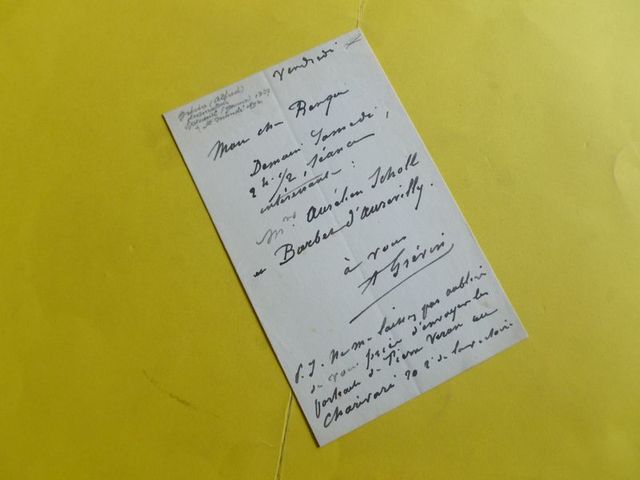 Vendredi
Grévin (Alfred)
1827
Mon cher Bengui
Demain Samedi,
2 h. 1/2, Séance
intéressante :
Mrs Aurélien Scholl
et Barbet d'Aurevilly.
à vous
A Grévin
P.S. Ne me laissez pas oublier
de vous prier d'envoyer les
portraits de Pierre Veron au
Charivari 20 r. de la